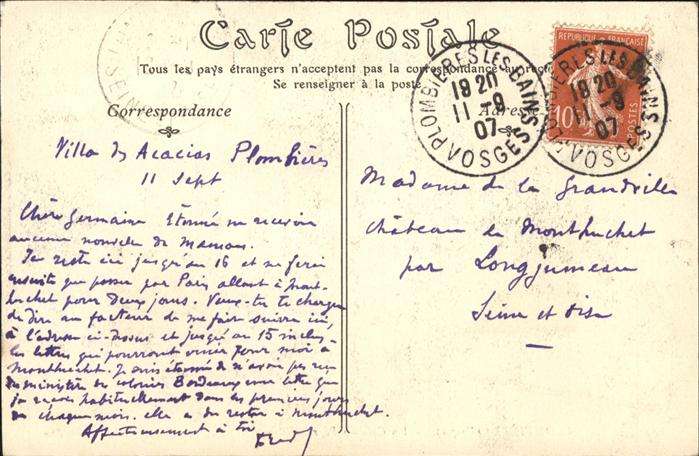 Carte Postale
Tous les pays étrangers n'acceptent pas la correspondance au recto
Se renseigner à la poste
Correspondance
Adresse
PLOMBIÈRES LES BAINS
18 20
11 - 9
07
VOSGES
REPUBLIQUE FRANÇAISE
10
PLOMBIÈRES LES BAINS
18 20
11 - 9
07
VOSGES
Villa des Acacias Plombières
11 Sept
Chère Germaine Etonné ne recevoir
aucune nouvelle de Maman.
Je reste ici jusqu'au 16 et ne ferai
ensuite que passer par Paris allant à Mont-
huchet pour deux jours. Veux-tu te charger
de dire au facteur de me faire suivre ici,
à l'adresse ci-dessus et jusqu'au 15 inclus,
les lettres qui pourront venir pour moi à
Monthuchet. Je suis étonné de n'avoir pas reçu
du ministère des colonies Bordeaux une lettre que
je reçois habituellement dans les premiers jours
de chaque mois. elle a du rester à Monthuchet.
Affectueusement à toi
Madame de la Grandville
château de Monthuchet
par Longjumeau
Seine et Oise